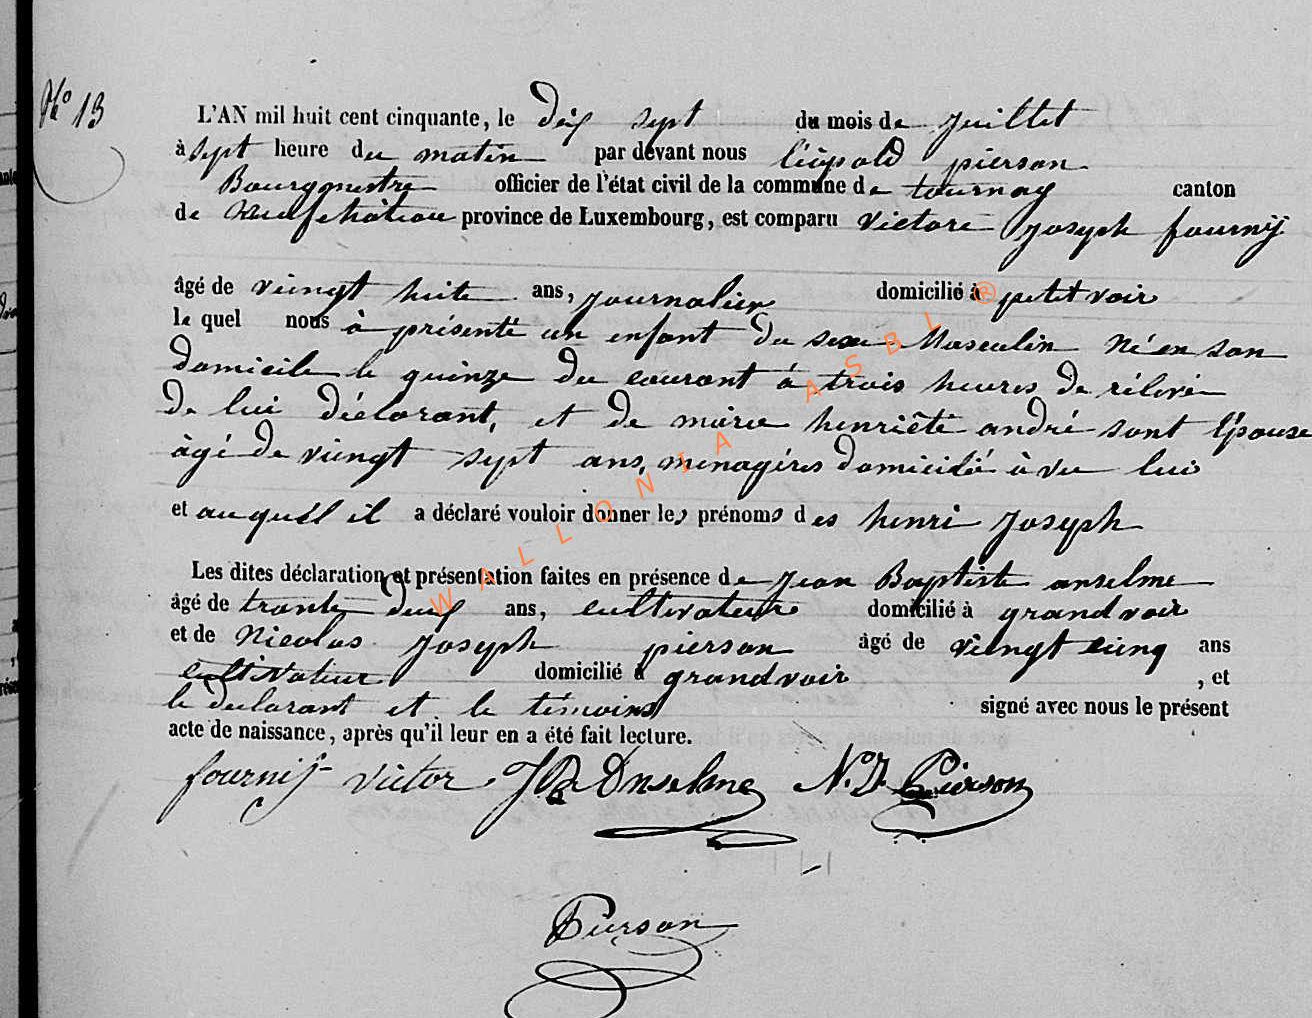 N° 13
L'AN mil huit cent cinquante, le dix sept du mois de juillet
à sept heure du matin par devant nous léopold pierson
Bourgmestre officier de l'état civil de la commune de tournay canton
de Neufchâteau province de Luxembourg, est comparu victore Joseph fournÿ
âgé de vuingt huite ans, journalier domicilié à petitvoir
le quel nous à présenté un enfant du sexe Masculin Né en son
domicile le quinze du courant à trois heures de rélevée
de lui déclarant, et de marie henriêtte andré sont Épouse
àgé de vuingt sept ans, menagères domicilé àvec lui
et auquél il a déclaré vouloir donner les prénoms des henri Joseph
Les dites déclaration et présentation faites en présence de Jean Baptiste anselme
âgé de trante deux ans, cultivateure domicilié à grandvoir
et de Nicolas Joseph pierson âgé de vuingt cinq ans
cultivateur domicilié à grandvoir , et
le declarant et le témoins signé avec nous le présent
acte de naissance, après qu'il leur en a été fait lecture.
fournÿ victor JB Anselme N. J. Pierson
Pierson
WALLONIA ASBL ®